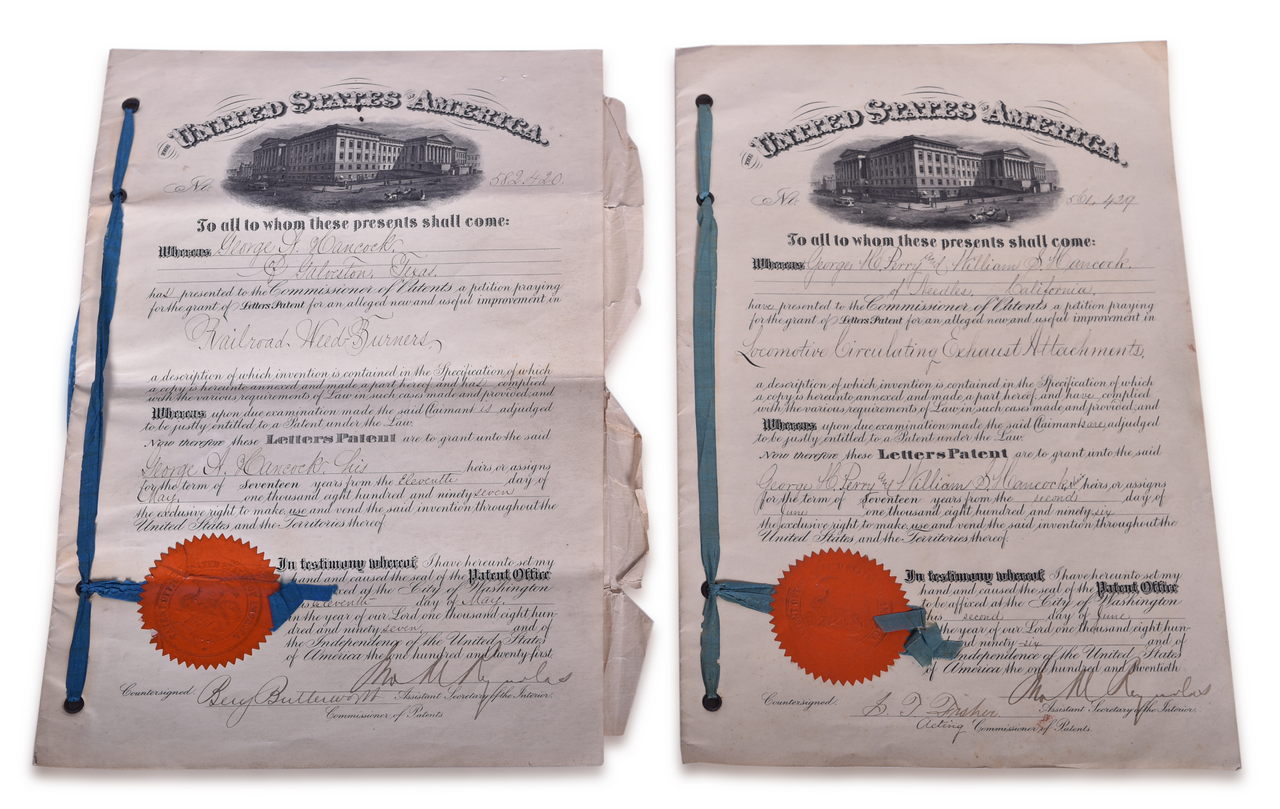 THE UNITED STATES OF AMERICA.
No. 582,420.
To all to whom these presents shall come:
Whereas George A. Hancock,
of Galveston, Texas.
has presented to the Commissioner of Patents a petition praying
for the grant of Letters Patent for an alleged new and useful improvement in
Railroad-Weed-Burners,
a description of which invention is contained in the Specification of which
a copy is hereunto annexed and made a part hereof and has complied
with the various requirements of Law in such cases made and provided, and
Whereas upon due examination made the said Claimant is adjudged
to be justly entitled to a Patent under the Law.
Now therefore these Letters Patent are to grant unto the said
George A. Hancock, his heirs or assigns
for the term of Seventeen years from the eleventh day of
May, one thousand eight hundred and ninety seven
the exclusive right to make, use and vend the said invention throughout the
United States and the Territories thereof.
In testimony whereof, I have hereunto set my
hand and caused the seal of the Patent Office
affixed at the City of Washington
this eleventh day of May,
in the year of our Lord one thousand eight hun-
dred and ninety seven, and of
the Independence of the United States
of America the one hundred and twenty-first.
Jno. M. Reynolds
Countersigned: Benj Butterworth Assistant Secretary of the Interior.
Commissioner of Patents.
THE UNITED STATES OF AMERICA.
No. 561,429
To all to whom these presents shall come:
Whereas George H. Perry and William S. Hancock,
of Needles, California,
have presented to the Commissioner of Patents a petition praying
for the grant of Letters Patent for an alleged new and useful improvement in
Locomotive Circulating Exhaust Attachments,
a description of which invention is contained in the Specification of which
a copy is hereunto annexed and made a part hereof and have complied
with the various requirements of Law in such cases made and provided, and
Whereas upon due examination made the said Claimants are adjudged
to be justly entitled to a Patent under the Law.
Now therefore these Letters Patent are to grant unto the said
George H. Perry and William S. Hancock, heirs or assigns
for the term of Seventeen years from the second day of
June, one thousand eight hundred and ninety-six
the exclusive right to make, use and vend the said invention throughout the
United States and the Territories thereof.
In testimony whereof, I have hereunto set my
hand and caused the seal of the Patent Office
to be affixed at the City of Washington
this second day of June,
the year of our Lord one thousand eight hun-
ninety-six and of
Independence of the United States
of America the one hundred and twentieth
Jno. M. Reynolds
Countersigned: S. T. Fisher Assistant Secretary of the Interior.
Acting Commissioner of Patents.